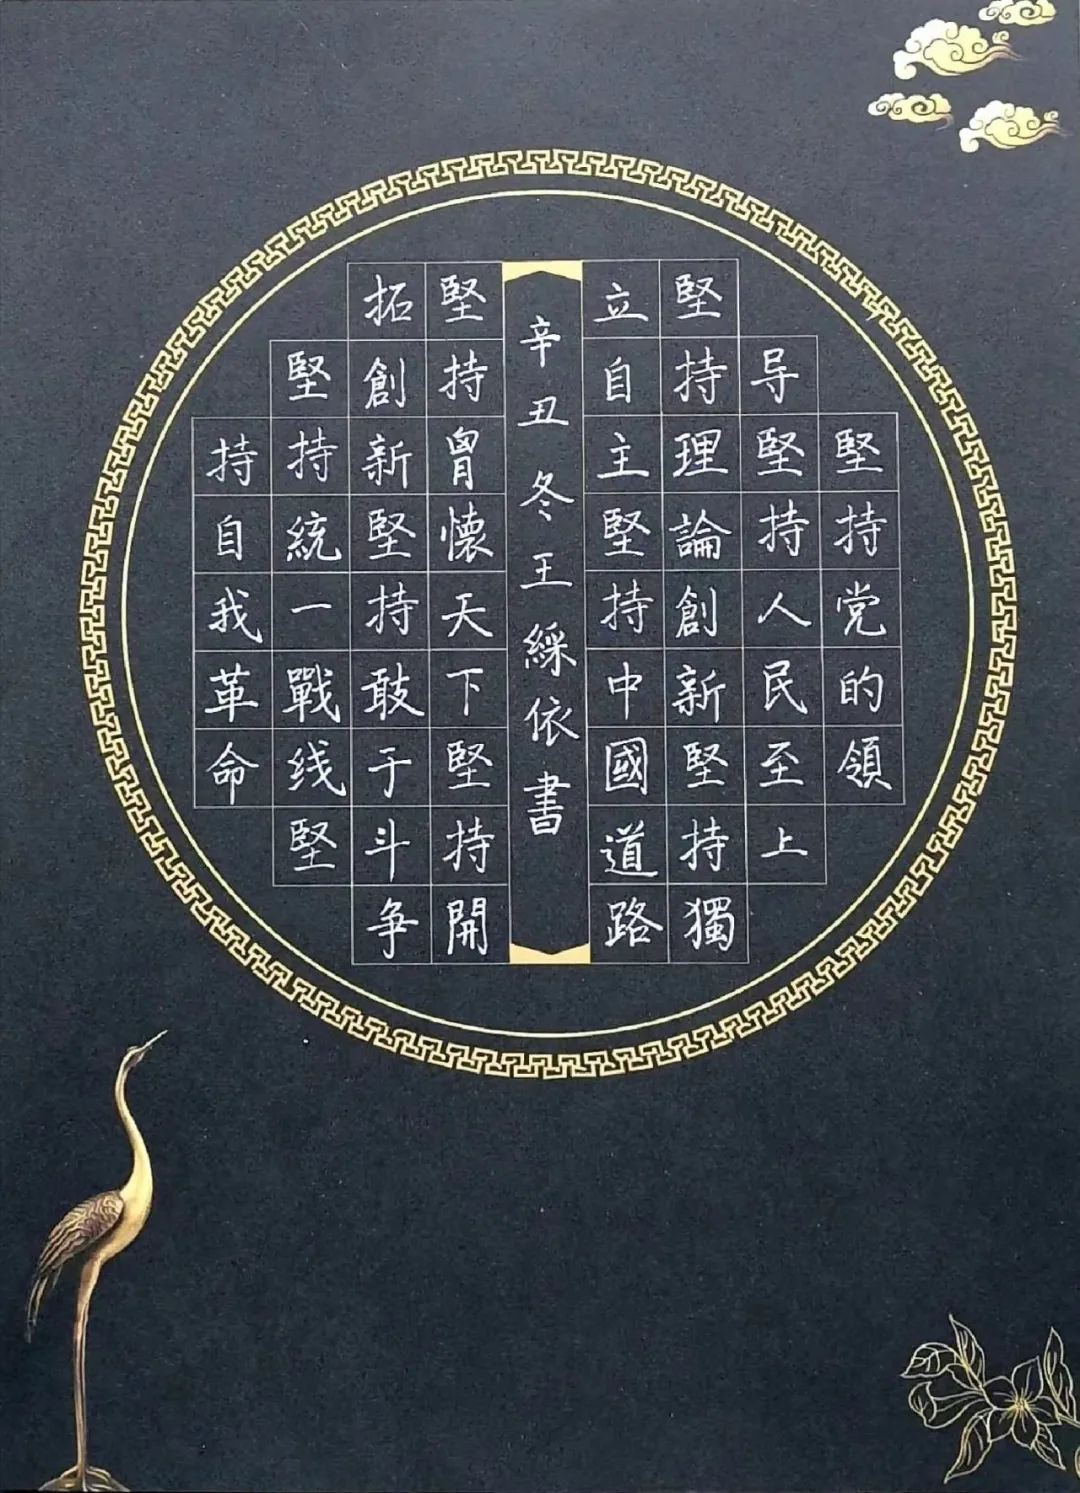 堅持党的領
导堅持人民至上
堅持理論創新堅持獨
立自主堅持中國道路
辛丑冬王綵依書
堅持胷懷天下堅持開
拓創新堅持敢于斗争
堅持統一戰线堅
持自我革命